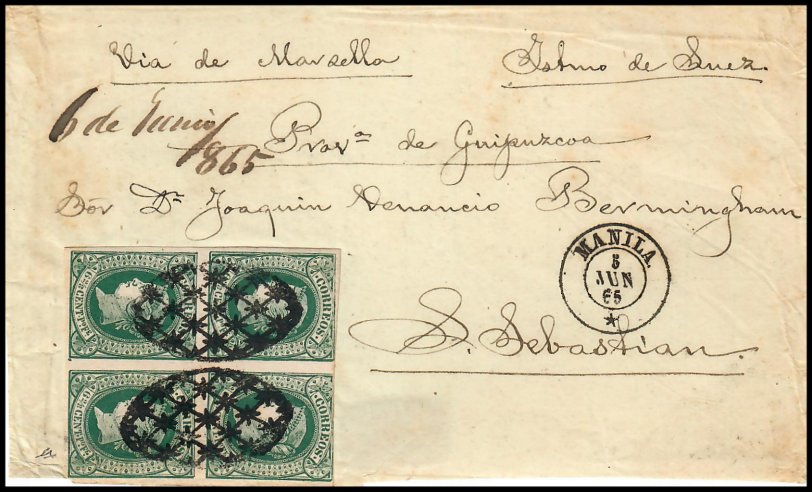 Via de Marsella Istmo de Suez.
6 de Junio
/865
Prov.ª de Guipuzcoa
Sōr Dn Joaquin Venancio Bermingham
MANILA.
5
JUN
65
S. Sebastian.
CORREOS.
CORREOS.